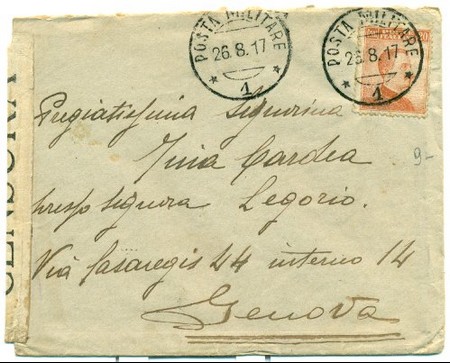 POSTA MILITARE
26.8.17
1
POSTA MILITARE
26.8.17
1
20
CENSURA
Pregiatissima Signorina
Cardea
presso signora Legorio.
Via Casaregis 44 interno 14
Genova
9-